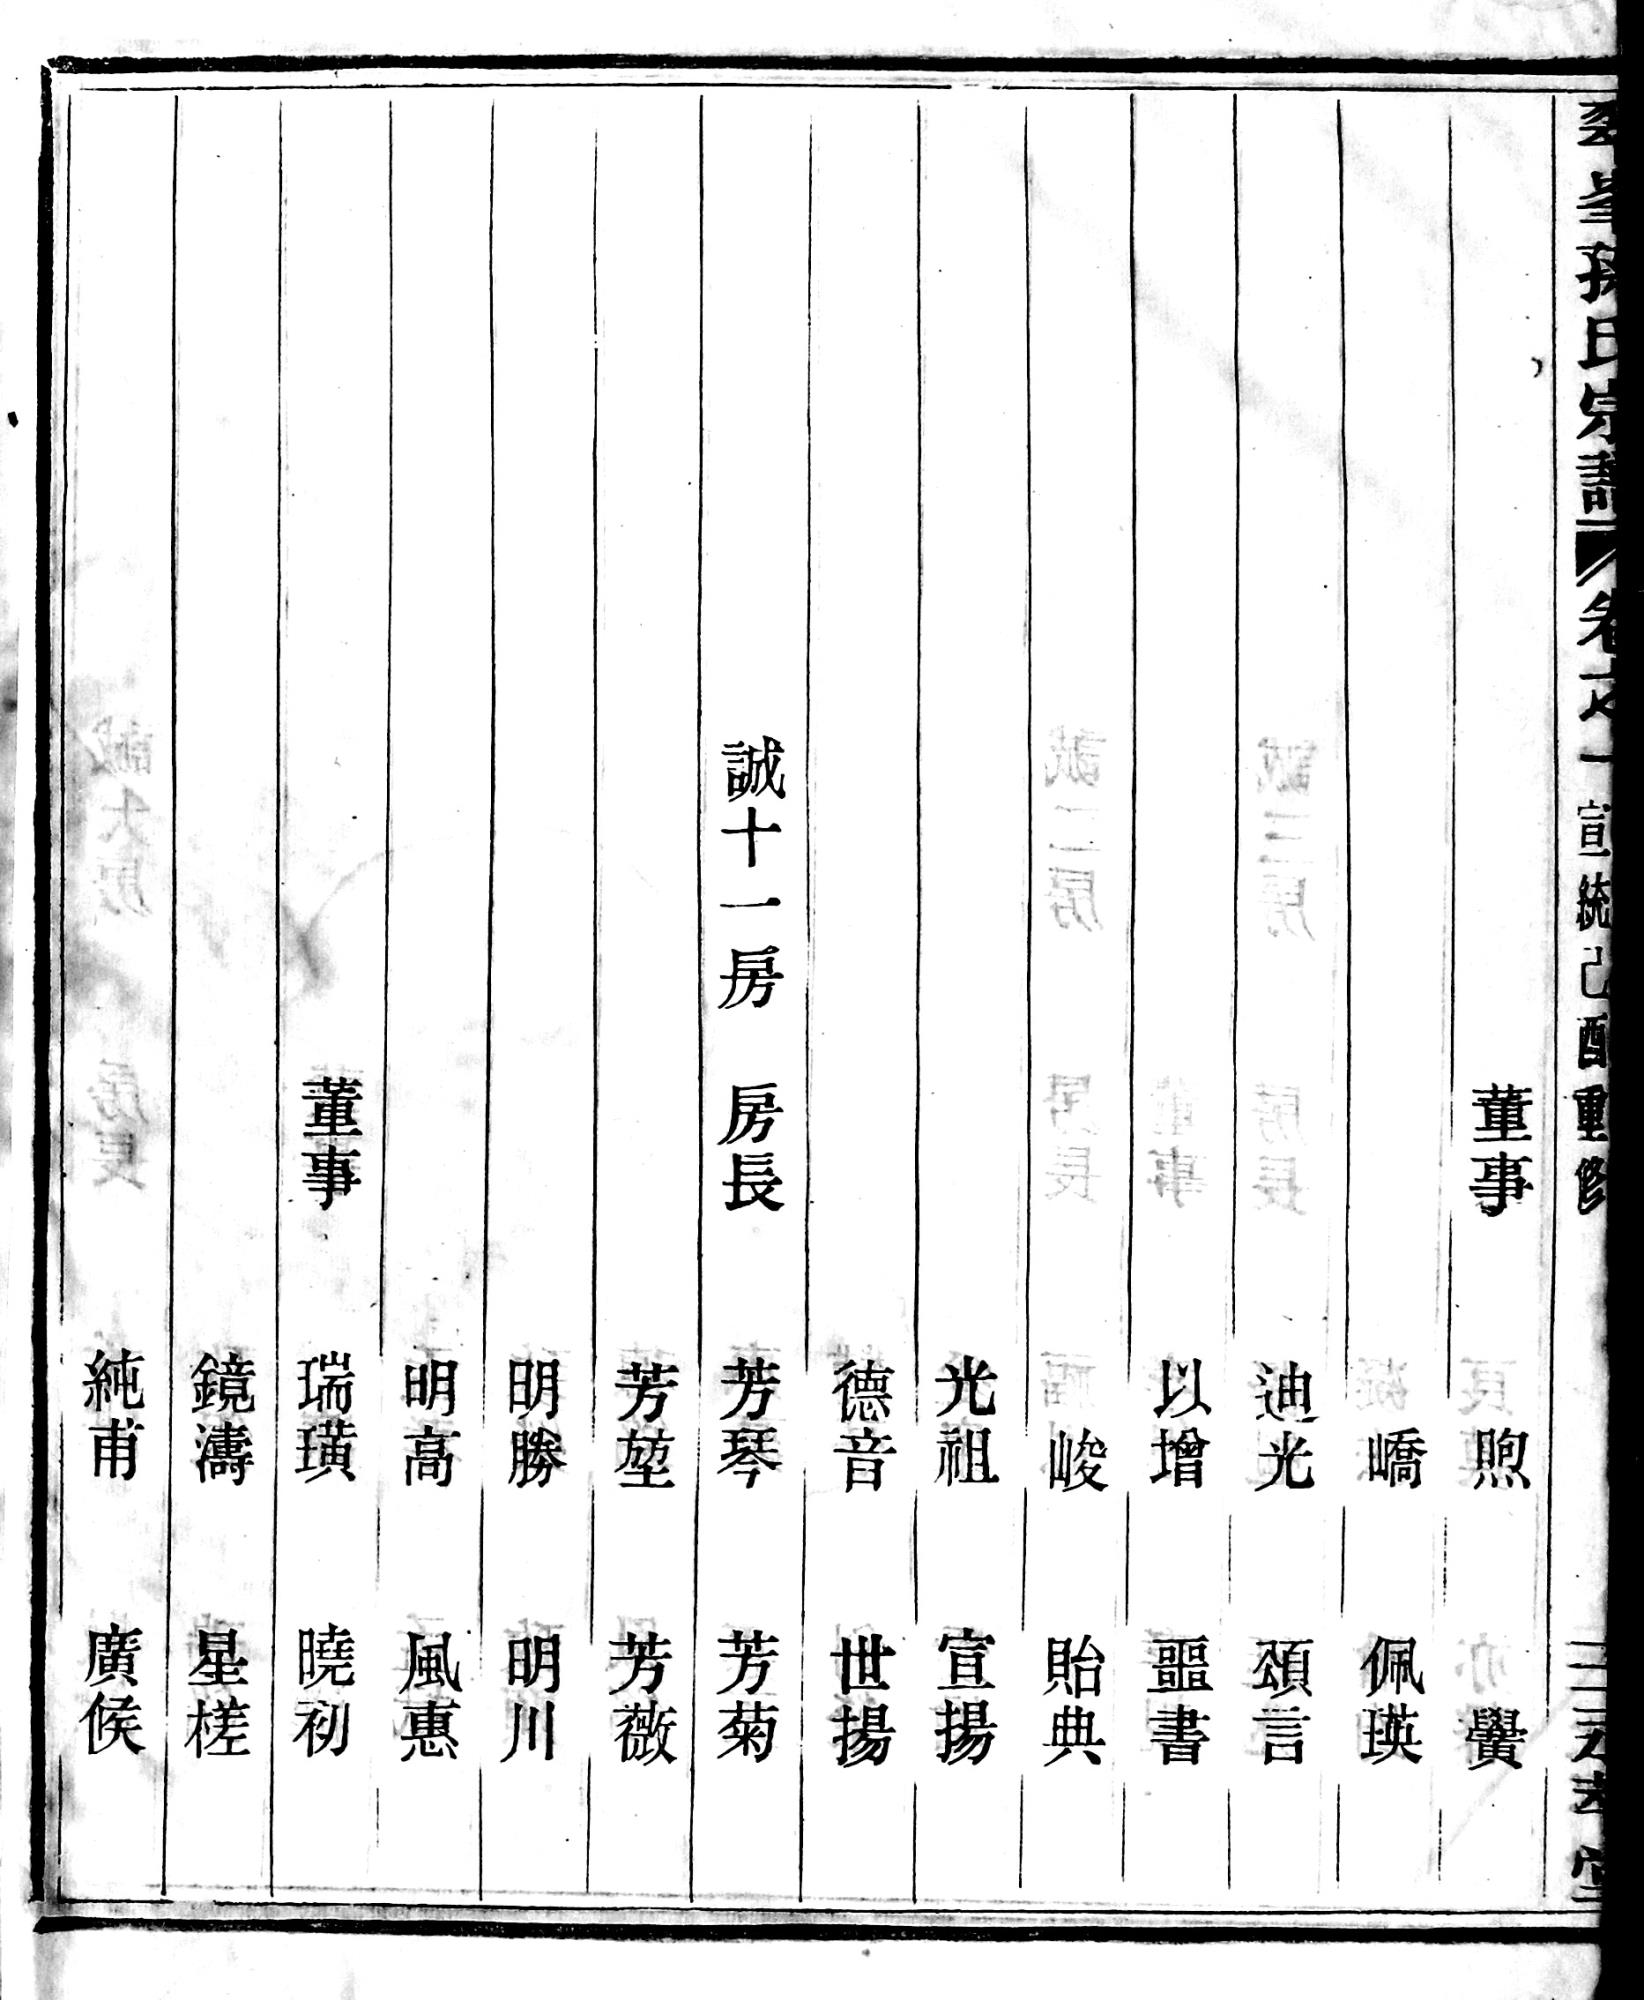 孫氏宗譜 卷之一 宣統己酉重修
董事 煦 黌
嶠 佩瑛
迪光 頌言
以增 噩書
峻 貽典
光祖 宣揚
德音 世揚
誠十一房 房長 芳琴 芳菊
芳堃 芳薇
明勝 明川
明高 風惠
董事 瑞璜 曉初
鏡濤 星槎
純甫 廣侯